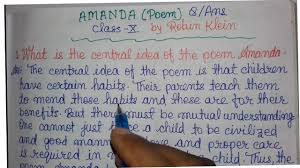 AMANDA (Poem) Q/Ans
Class-X by Robin Klein
1. What is the central idea of the poem Amanda.
The central idea of the poem is that children
have certain habits. Their parents teach them
to mend those habits and these are for their
benefits. But there must be mutual understanding
One cannot just a child to be civilized
and good manne and proper care
is required in